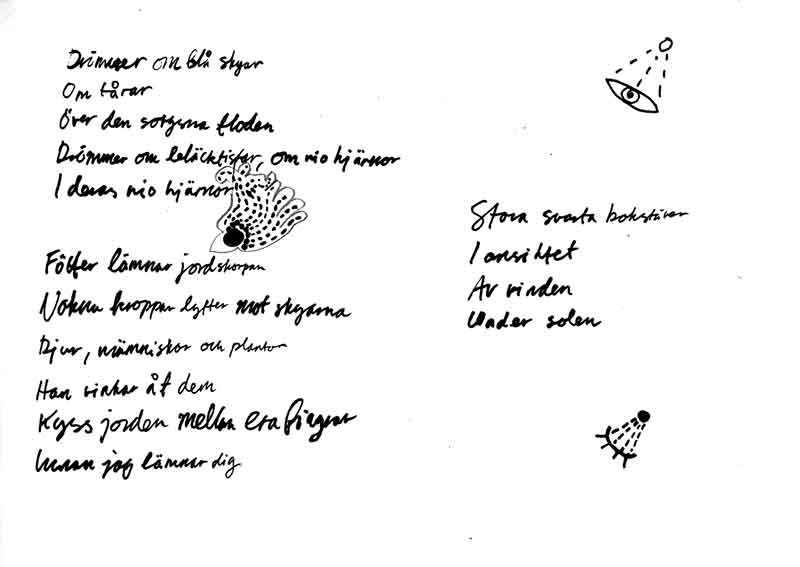 Drömmer om blå skyar
Om tårar
Över den sorgsna floden
Drömmer om bläckfiskar, om nio hjärnor
I deras nio hjärnor
Fötter lämnar jordskorpan
Vuxna kroppar lyfter mot skyarna
Djur, människor och plantor
Han vinkar åt dem
Kyss jorden mellan era fingrar
Innan jag lämnar dig
Stora svarta bokstäver
I ansiktet
Av vinden
Under solen